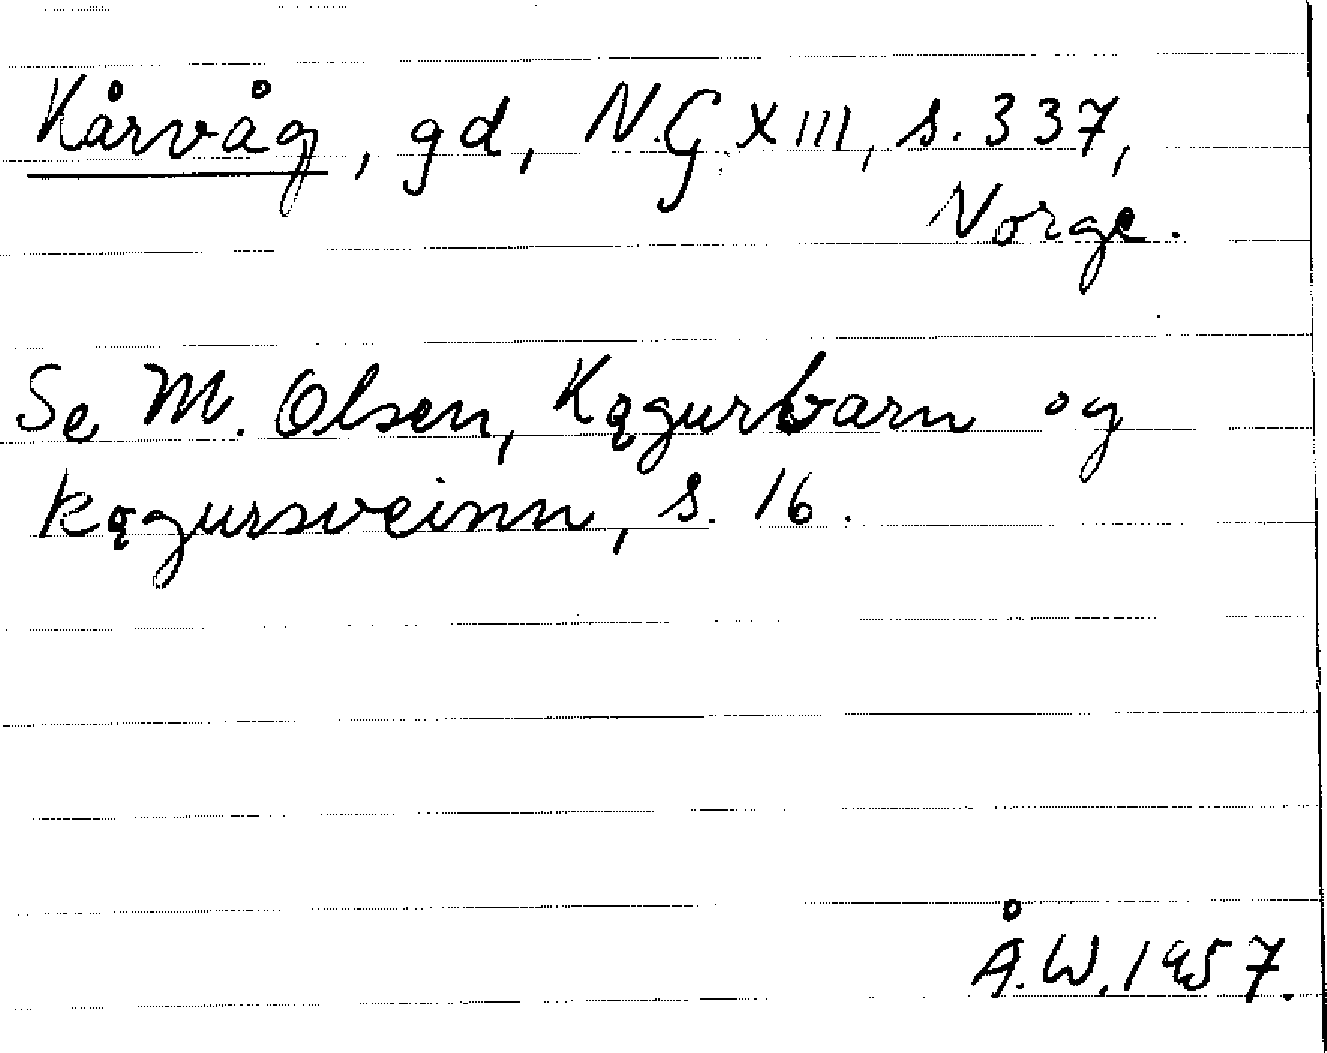 Kårvåg, gd, N.G. XIII, s. 337,
Norge.
Se M. Olsen, Kǫgurbarn og
kǫgursveinn, s. 16.
Å.W. 1957.